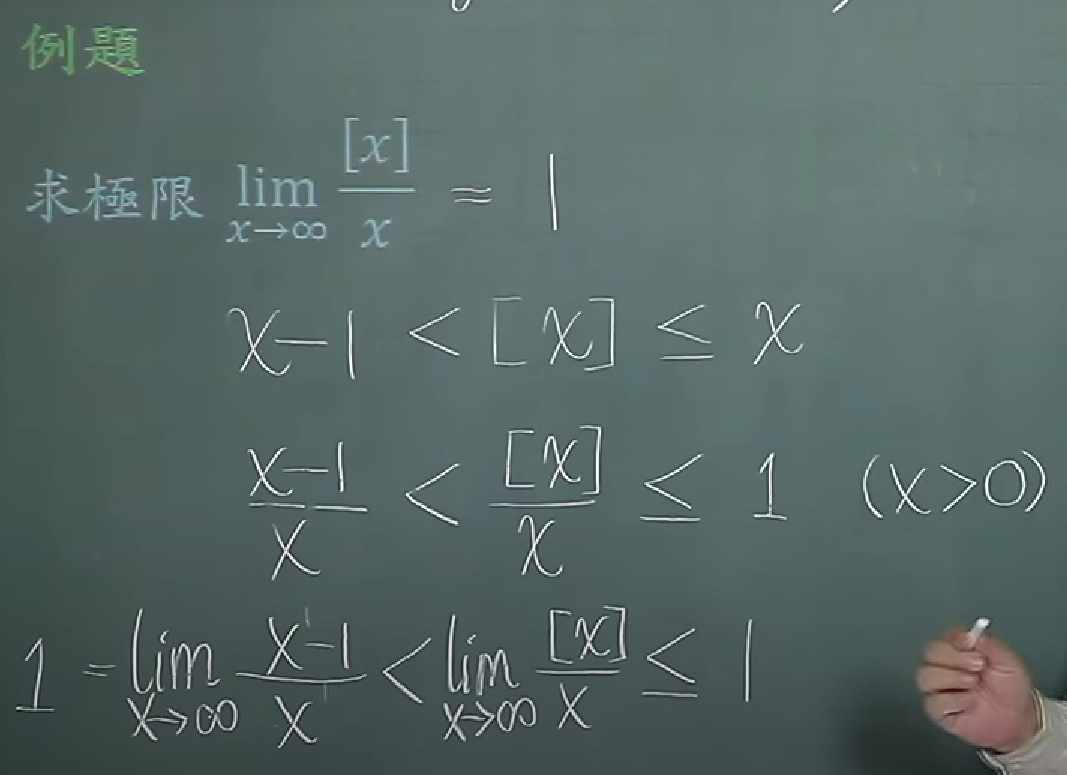 例題
求極限 lim x→∞ [x]/x = 1
x-1 < [x] ≤ x
x-1/x < [x]/x ≤ 1 (x>0)
1 = lim x→∞ x-1/x < lim x→∞ [x]/x ≤ 1